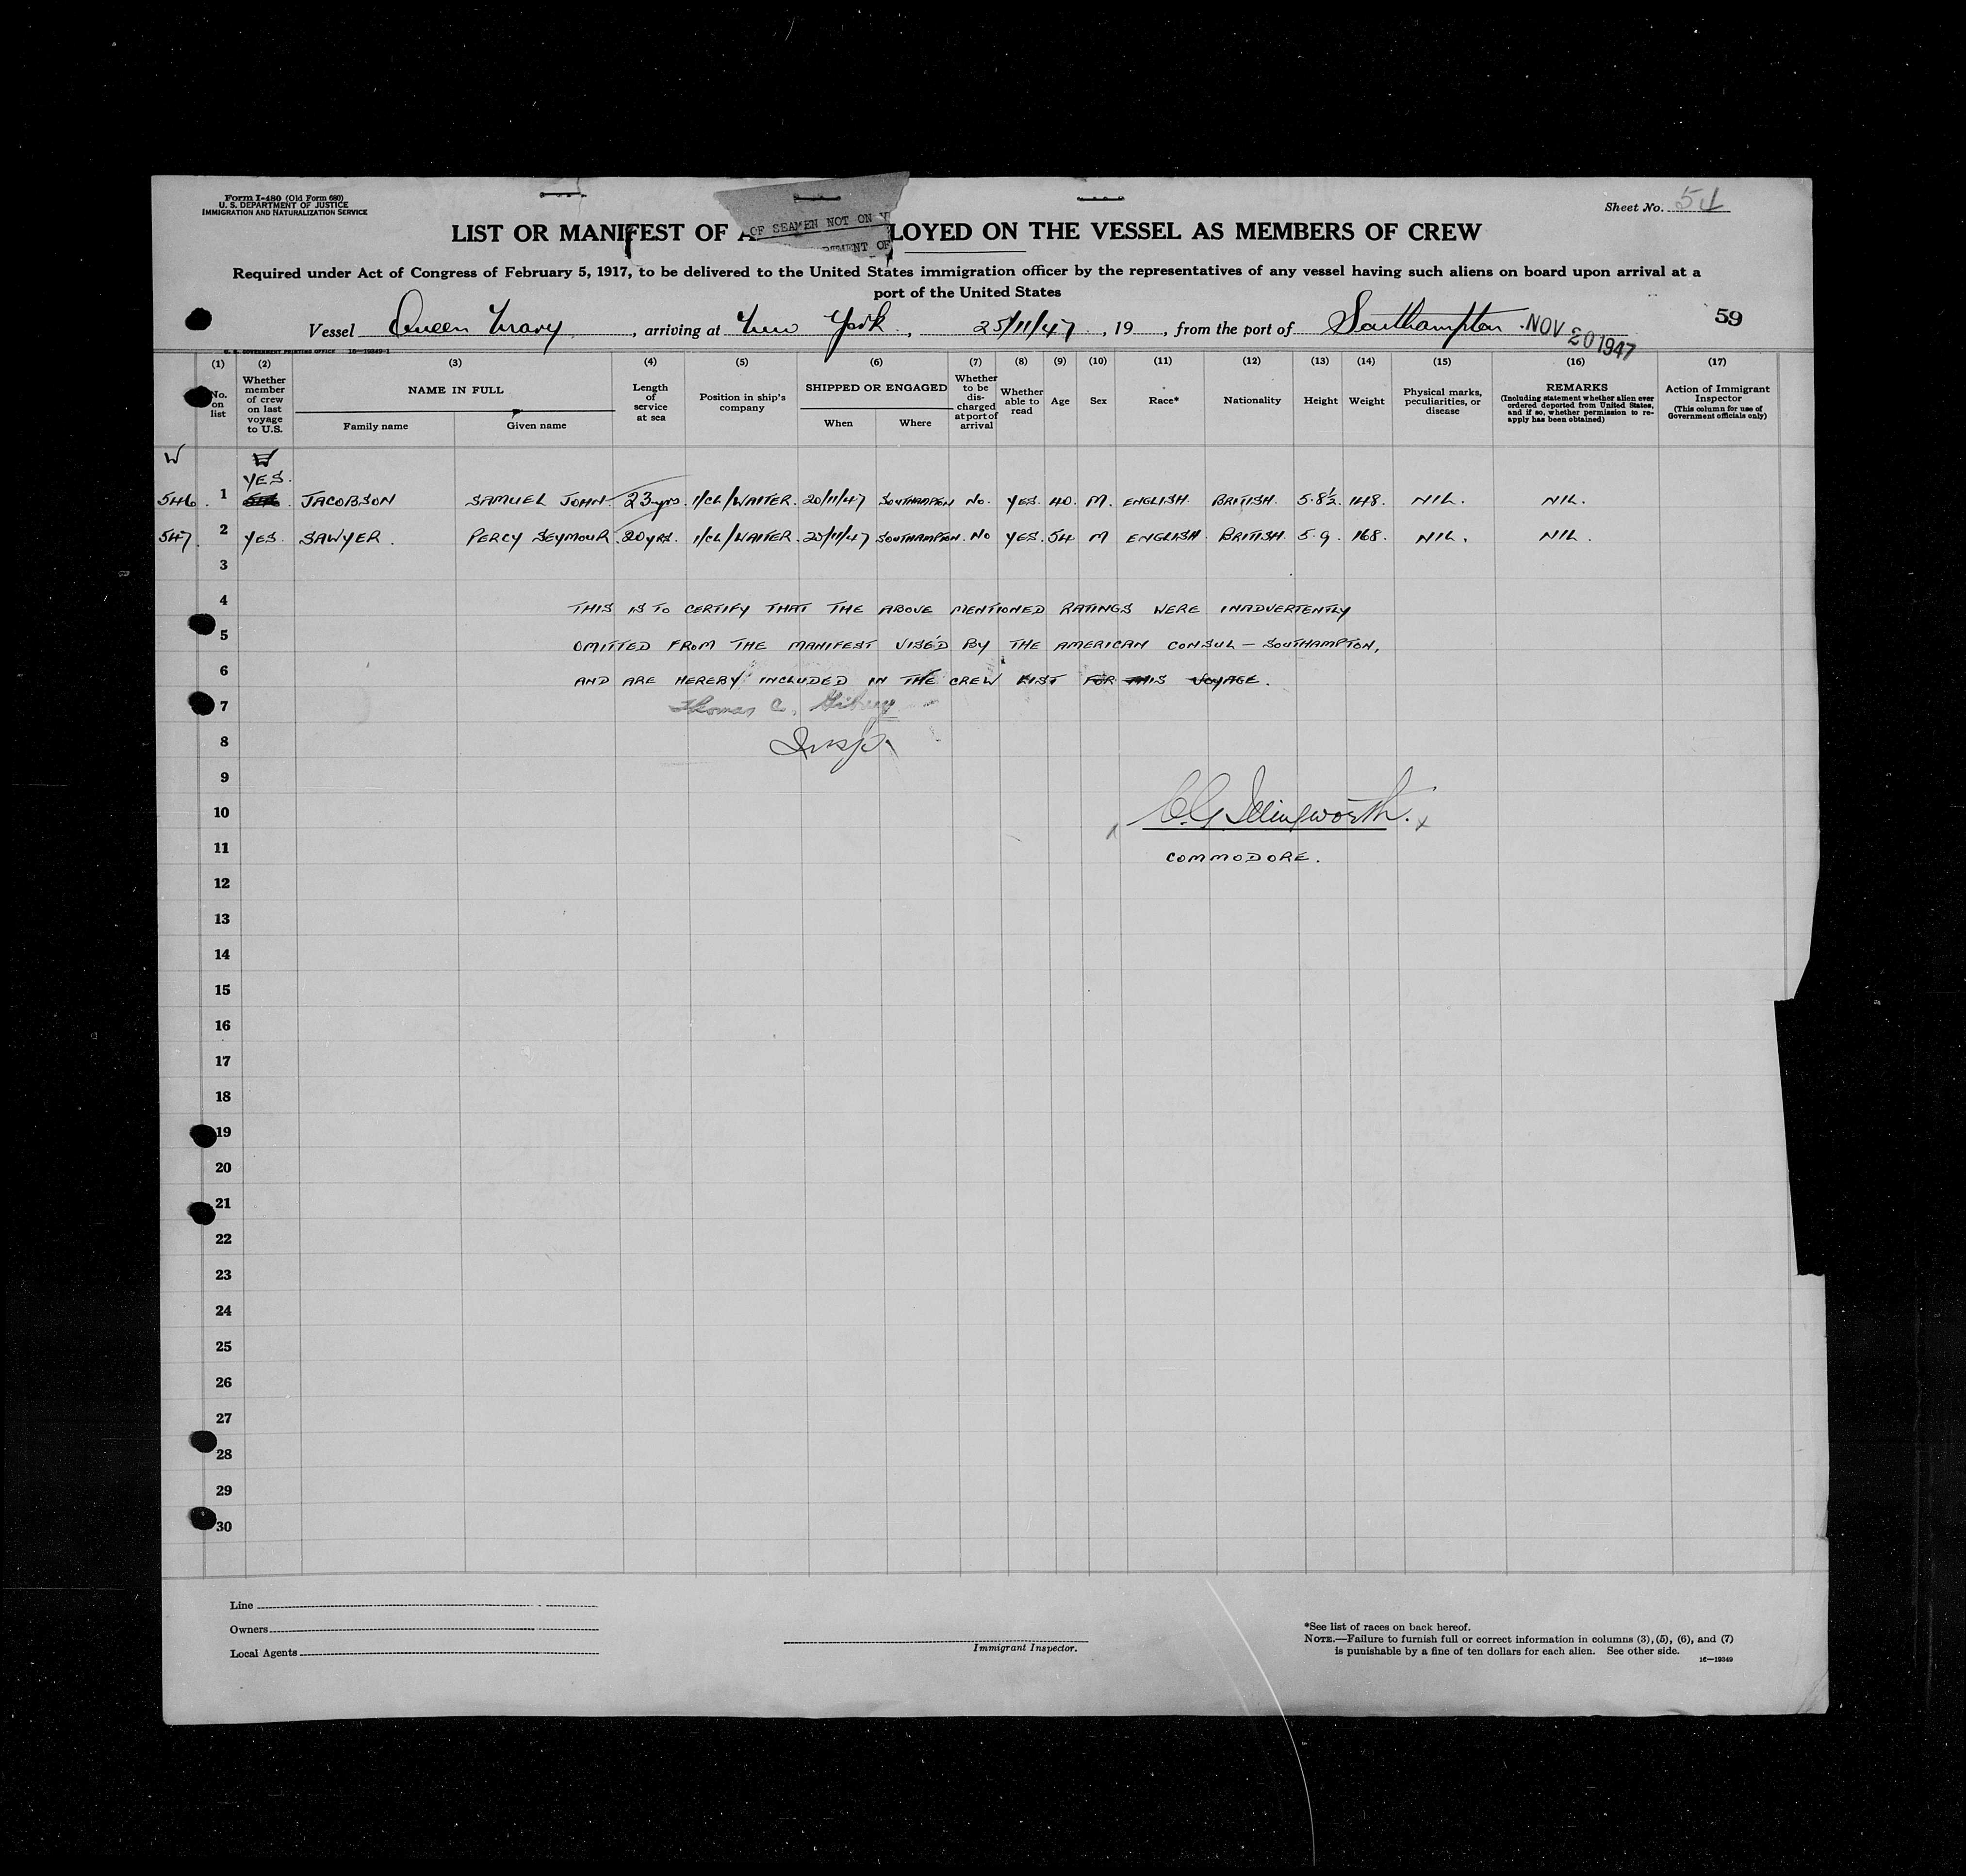 Form I-480 (Old Form 680)
U. S. DEPARTMENT OF JUSTICE
IMMIGRATION AND NATURALIZATION SERVICE
Sheet No. 54
OF SEAMEN NOT ON
LIST OR MANIFEST OF A LOYED ON THE VESSEL AS MEMBERS OF CREW
RTMENT OF
Required under Act of Congress of February 5, 1917, to be delivered to the United States immigration officer by the representatives of any vessel having such aliens on board upon arrival at a
port of the United States
59
Vessel Queen Mary, arriving at New York, 25/11/47, 19, from the port of Southampton. NOV 20 1947
U. S. GOVERNMENT PRINTING OFFICE 16—19349-1
(1) (2) (3) (4) (5) (6) (7) (8) (9) (10) (11) (12) (13) (14) (15) (16) (17)
No. on list
Whether member of crew on last voyage to U.S.
NAME IN FULL
Family name Given name
Length of service at sea
Position in ship's company
SHIPPED OR ENGAGED
When Where
Whether to be discharged at port of arrival
Whether able to read
Age
Sex
Race*
Nationality
Height
Weight
Physical marks, peculiarities, or disease
REMARKS
(Including statement whether alien ever ordered deported from United States, and if so, whether permission to re-apply has been obtained)
Action of Immigrant Inspector
(This column for use of Government officials only)
W W
YES.
546. 1 JACOBSON SAMUEL JOHN. 23 yrs. 1/CL/WAITER. 20/11/47 SOUTHAMPTON No. YES. 40. M. ENGLISH. BRITISH. 5.8½. 148. NIL. NIL.
547. 2 YES. SAWYER. PERCY SEYMOUR. 20 yrs. 1/CL/WAITER. 20/11/47 SOUTHAMPTON. No YES. 54 M ENGLISH. BRITISH. 5.9. 168. NIL. NIL.
3
4 THIS IS TO CERTIFY THAT THE ABOVE MENTIONED RATINGS WERE INADVERTENTLY
5 OMITTED FROM THE MANIFEST VISE'D BY THE AMERICAN CONSUL — SOUTHAMPTON,
6 AND ARE HEREBY INCLUDED IN THE CREW LIST FOR THIS VOYAGE.
7 Thomas C.
8 Insp.
9
10 C.G. Illingworth.
11 COMMODORE.
12
13
14
15
16
17
18
19
20
21
22
23
24
25
26
27
28
29
30
Line
Owners
Local Agents
Immigrant Inspector.
*See list of races on back hereof.
NOTE.—Failure to furnish full or correct information in columns (3), (5), (6), and (7)
is punishable by a fine of ten dollars for each alien. See other side.
16—19349